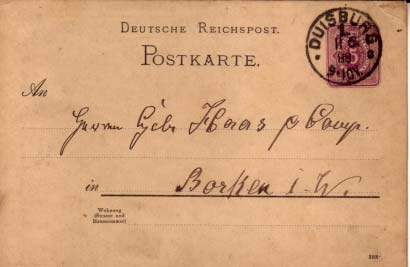 DEUTSCHE REICHSPOST.
POSTKARTE.
DUISBURG
1.
88
9-10V.
An
Herren Gebr Haas & Comp.
in Borken i. W.
Wohnung
(Strasse und
Hausnummer)